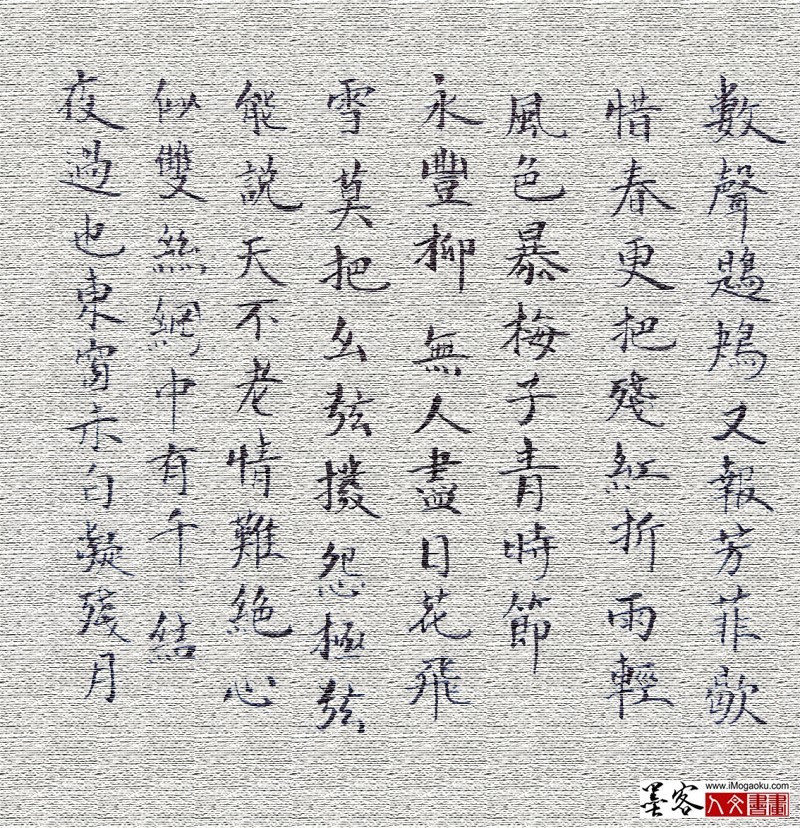 數聲鶗鴂又報芳菲歇
惜春更把殘紅折雨輕
風色暴梅子青時節
永豐柳無人盡日花飛
雪莫把幺弦撥怨極弦
能說天不老情難絕心
似雙絲網中有千千結
夜過也東窗未白凝殘月
墨客
www.iMogaoku.com
人文書畫